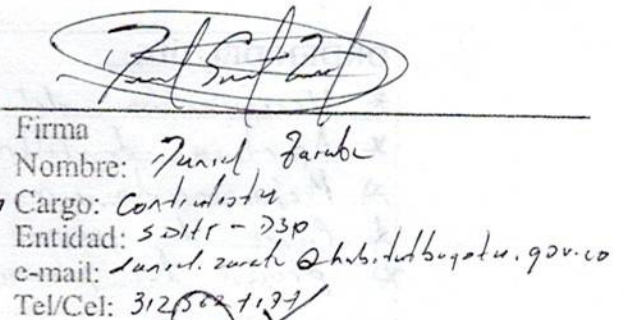 Firma
Nombre: Daniel Zarate
Cargo: Contratista
Entidad: SDHT -
e-mail: daniel.zarate@habitatbogota.gov.co
Tel/Cel: 312